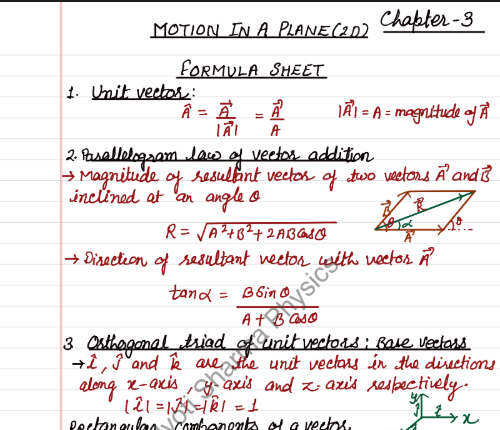 MOTION IN A PLANE (2D) Chapter-3
FORMULA SHEET
1. Unit vector:
Â = A⃗/|A⃗| = A⃗/A |A⃗| = A = magnitude of A⃗
2. Parallelogram law of vector addition
→ Magnitude of resultant vector of two vectors A⃗ and B⃗
inclined at an angle θ
R = √(A²+B²+2ABCosθ)
B⃗ R⃗ θ α A⃗ θ
→ Direction of resultant vector with vector A⃗
tanα = BSinθ/(A + BCosθ)
3 Orthogonal triad of unit vectors: Base vectors
→ î, ĵ and k̂ are the unit vectors in the directions
along x-axis, y axis and z-axis respectively.
|î| = |ĵ| = |k̂| = 1
y ĵ î x
Rectangular components of a vector
Jyoti Sharma Physics